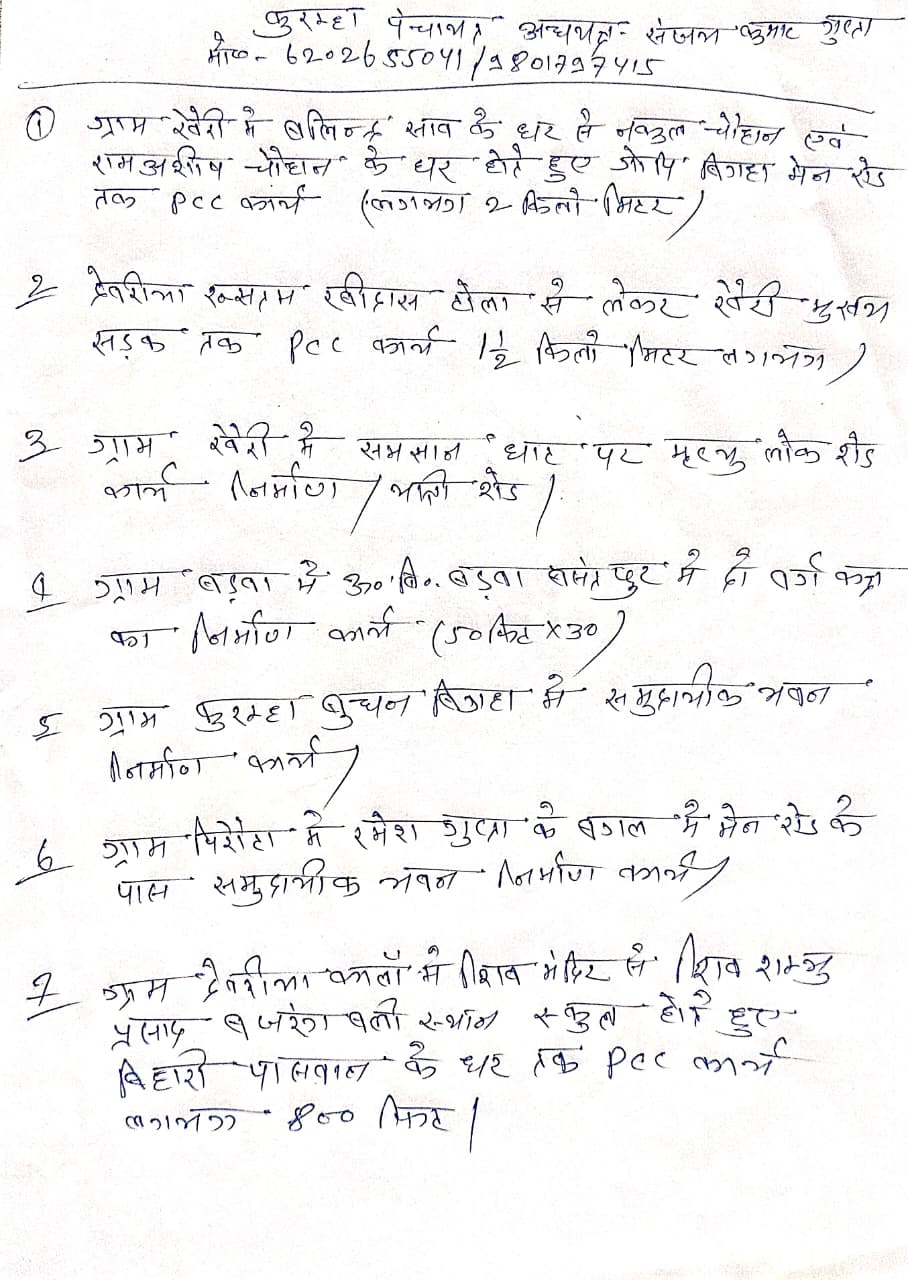 कुरम्हा पंचायत अध्यक्ष- संजय कुमार गुप्ता
मो०- 6202655041/9801797415
① ग्राम खैरी में बलिन्द्र साव के घर से नकुल चौहान एवं
रामअशीष चौहान के घर होते हुए जोगि बिगहा मेन रोड
तक PCC कार्य (लगभग 2 किलो मिटर)
2 देवरीया रविदास टोला से लेकर खैरी मुख्य
सड़क तक PCC कार्य 1 1/2 किलो मिटर लगभग)
3 ग्राम खैरी में समसान घाट पर मृत्यु लोक शेड
कार्य निर्माण / यात्री शेड /
4 ग्राम बड़वा में उ० वि० बड़वा बसंतपुर में दो वर्ग कक्ष
का निर्माण कार्य (50 फिट X 30)
5 ग्राम कुरम्हा बुधन बिगहा में समुदायीक भवन
निर्माण कार्य /
6 ग्राम पिरौटा में रमेश गुप्ता के बगल में मेन रोड के
पास समुदायीक भवन निर्माण कार्य /
7 ग्राम देवरीया कलॉ में शिव मंदिर से शिव शम्भु
प्रसाद बजरंग बली स्थान स्कुल होते हुए
बिहारी पासवान के घर तक PCC कार्य
लगभग 800 फिट /